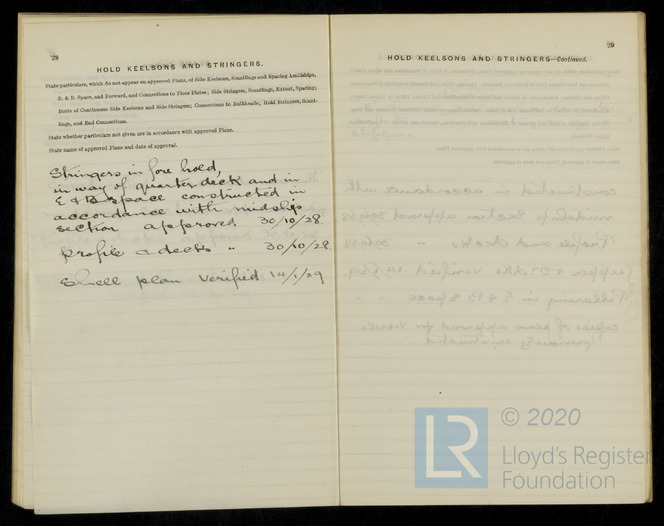 28
HOLD KEELSONS AND STRINGERS.
State particulars, which do not appear on approved Plans, of Side Keelsons, Scantlings and Spacing Amidships,
E. & B. Space, and Forward, and Connections to Floor Plates; Side Stringers, Scantlings, Extent, Spacing;
Butts of Continuous Side Keelsons and Side Stringers; Connections to Bulkheads; Hold Stringers, Scant-
lings, and End Connections.
State whether particulars not given are in accordance with approved Plans.
State name of approved Plans and date of approval.
Stringers in fore hold,
in way of quarter deck and in
E & B space constructed in
accordance with midship
section approved 30/10/28.
Profile & decks " 30/10/28
Shell plan verified 14/1/29
29
HOLD KEELSONS AND STRINGERS—Continued.
LR
© 2020
Lloyd's Register
Foundation